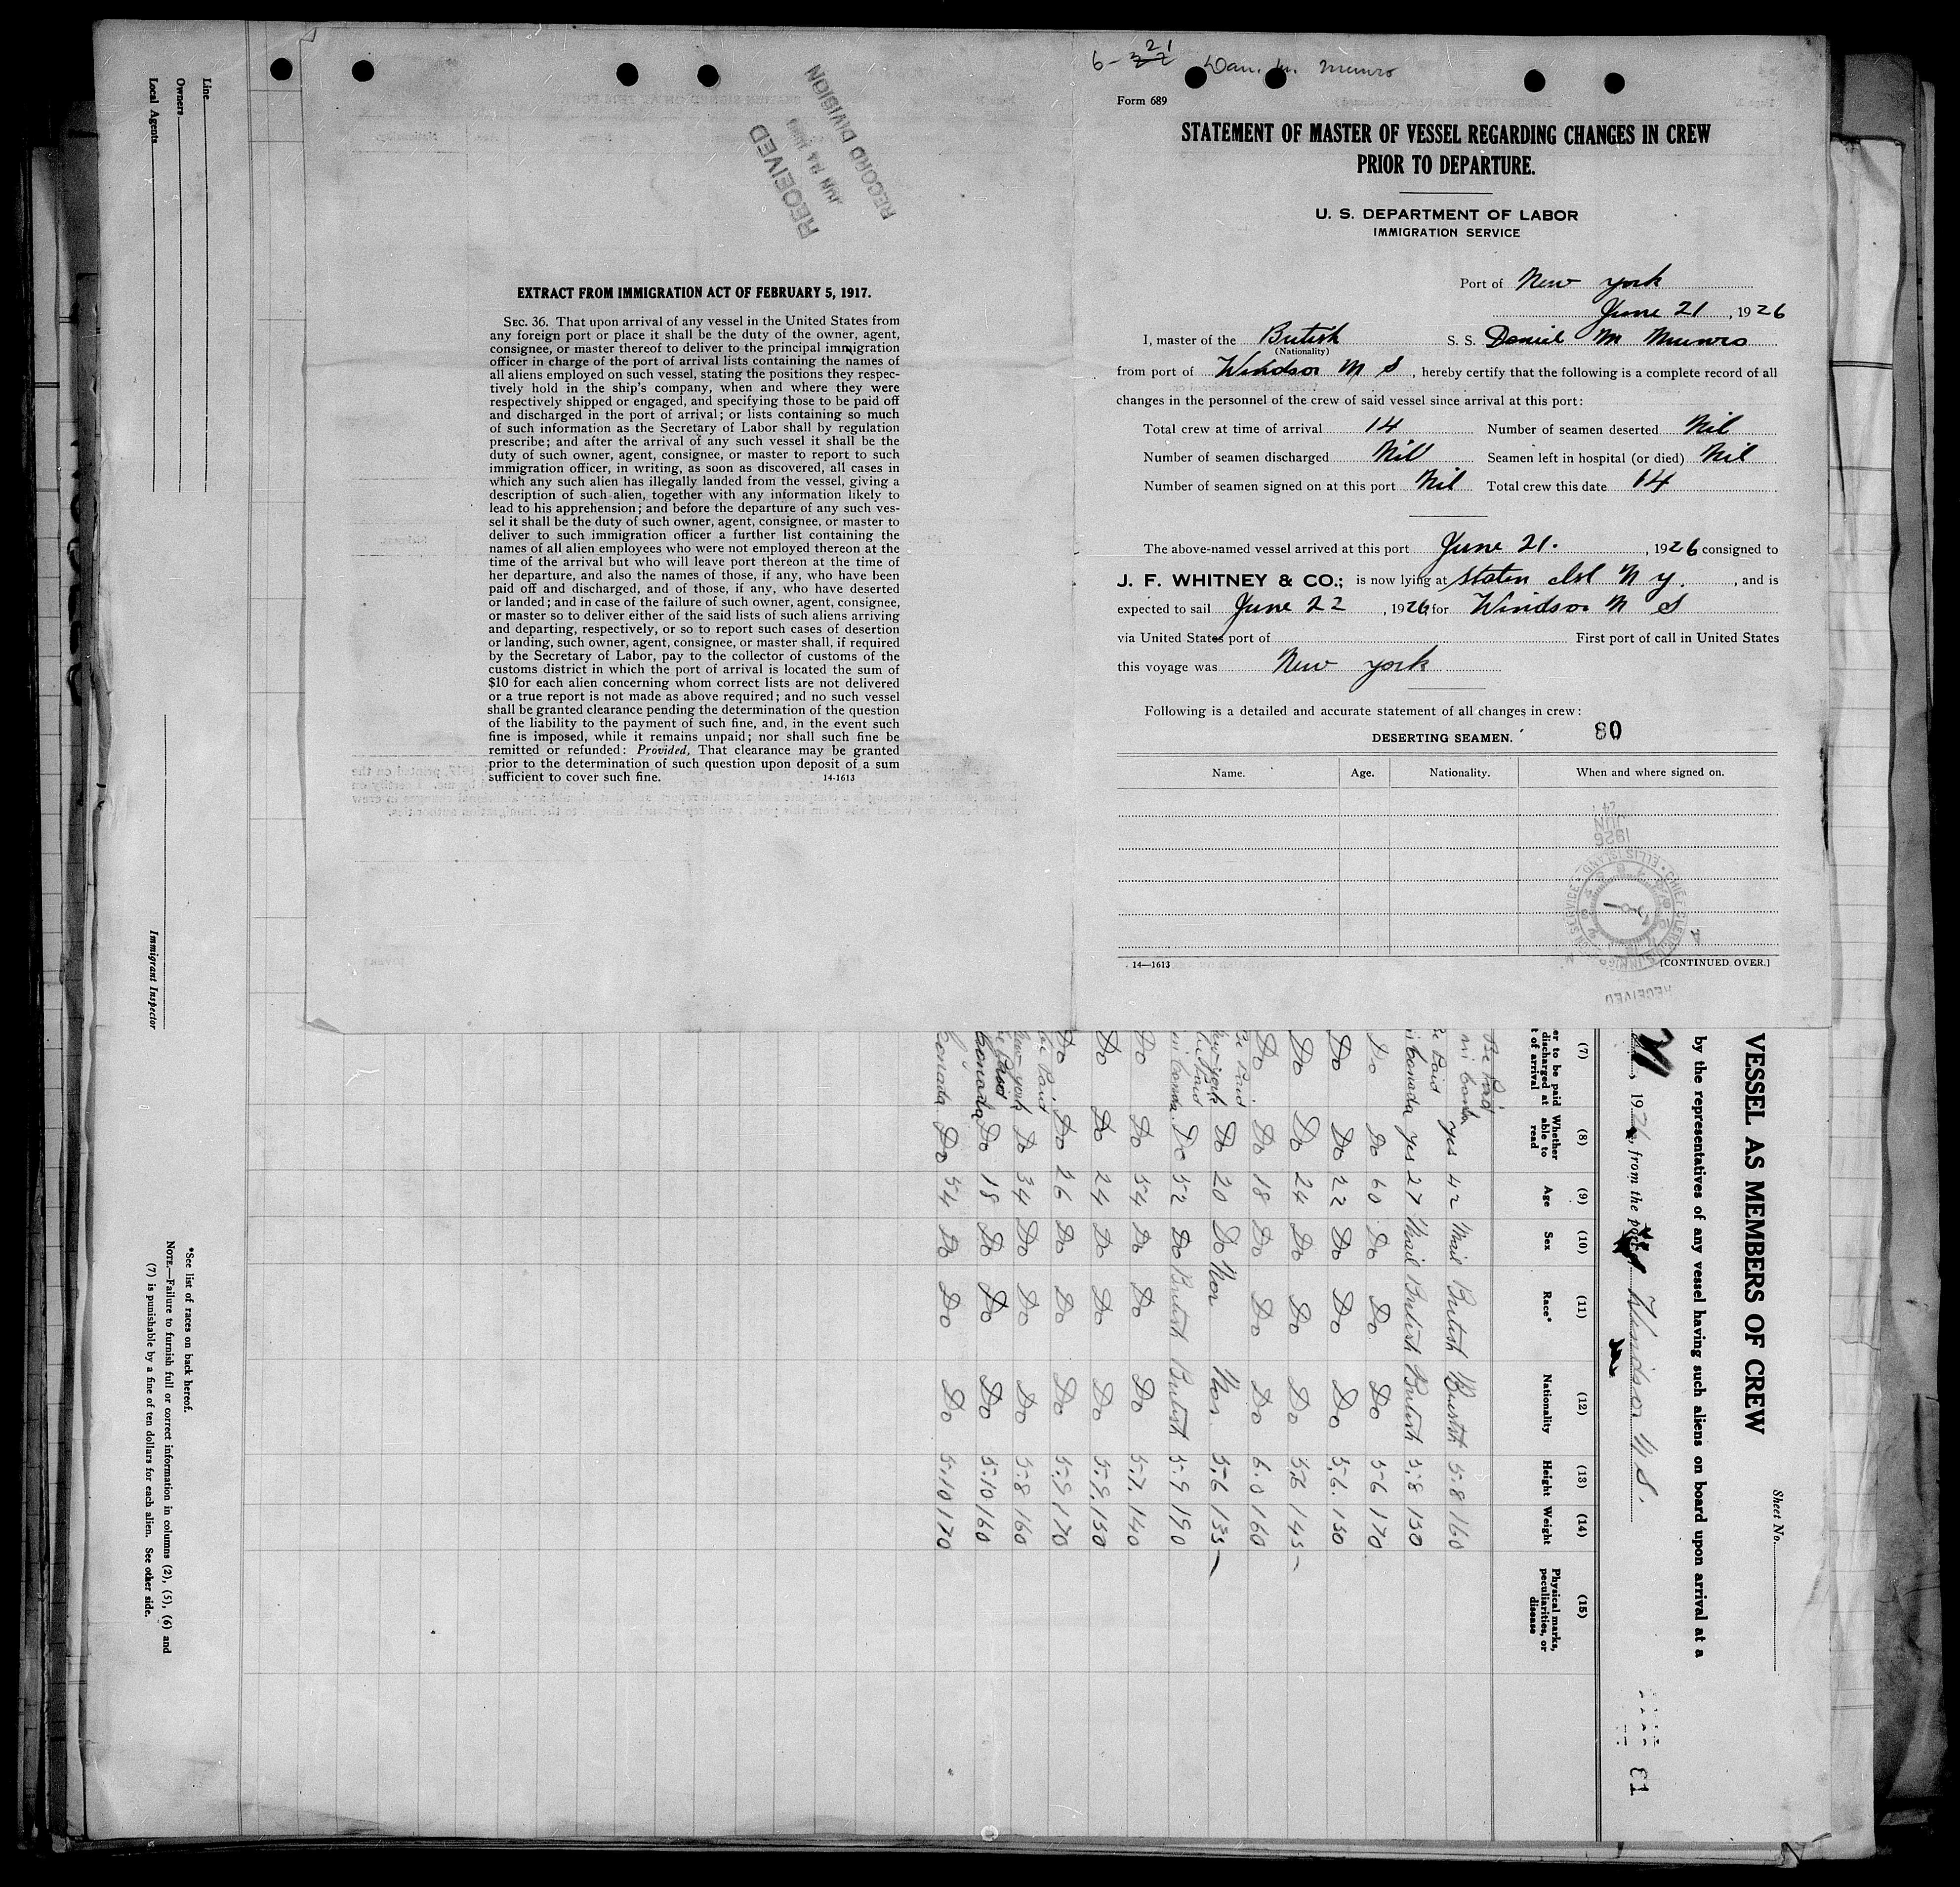 6-
21
Dan. M. Munro
Form 689
STATEMENT OF MASTER OF VESSEL REGARDING CHANGES IN CREW
PRIOR TO DEPARTURE.
U. S. DEPARTMENT OF LABOR
IMMIGRATION SERVICE
Port of New york
June 21, 1926
I, master of the British S. S. Daniel M Munro
(Nationality)
from port of Windsor N S, hereby certify that the following is a complete record of all
changes in the personnel of the crew of said vessel since arrival at this port:
Total crew at time of arrival 14 Number of seamen deserted Nil
Number of seamen discharged Nil Seamen left in hospital (or died) Nil
Number of seamen signed on at this port Nil Total crew this date 14
The above-named vessel arrived at this port June 21., 1926 consigned to
J. F. WHITNEY & CO.; is now lying at Staten Isl N y., and is
expected to sail June 22, 1926 for Windsor N S
via United States port of First port of call in United States
this voyage was New york
Following is a detailed and accurate statement of all changes in crew:
DESERTING SEAMEN. 80
Name. Age. Nationality. When and where signed on.
14—1613 [CONTINUED OVER.]
1926
JUN
24
CHIEF CLERK
ELLIS ISLAND
RECEIVED
RECEIVED
JUN 24 1926
RECORD DIVISION
EXTRACT FROM IMMIGRATION ACT OF FEBRUARY 5, 1917.
SEC. 36. That upon arrival of any vessel in the United States from
any foreign port or place it shall be the duty of the owner, agent,
consignee, or master thereof to deliver to the principal immigration
officer in charge of the port of arrival lists containing the names of
all aliens employed on such vessel, stating the positions they respec-
tively hold in the ship's company, when and where they were
respectively shipped or engaged, and specifying those to be paid off
and discharged in the port of arrival; or lists containing so much
of such information as the Secretary of Labor shall by regulation
prescribe; and after the arrival of any such vessel it shall be the
duty of such owner, agent, consignee, or master to report to such
immigration officer, in writing, as soon as discovered, all cases in
which any such alien has illegally landed from the vessel, giving a
description of such alien, together with any information likely to
lead to his apprehension; and before the departure of any such ves-
sel it shall be the duty of such owner, agent, consignee, or master to
deliver to such immigration officer a further list containing the
names of all alien employees who were not employed thereon at the
time of the arrival but who will leave port thereon at the time of
her departure, and also the names of those, if any, who have been
paid off and discharged, and of those, if any, who have deserted
or landed; and in case of the failure of such owner, agent, consignee,
or master so to deliver either of the said lists of such aliens arriving
and departing, respectively, or so to report such cases of desertion
or landing, such owner, agent, consignee, or master shall, if required
by the Secretary of Labor, pay to the collector of customs of the
customs district in which the port of arrival is located the sum of
$10 for each alien concerning whom correct lists are not delivered
or a true report is not made as above required; and no such vessel
shall be granted clearance pending the determination of the question
of the liability to the payment of such fine, and, in the event such
fine is imposed, while it remains unpaid; nor shall such fine be
remitted or refunded: Provided, That clearance may be granted
prior to the determination of such question upon deposit of a sum
sufficient to cover such fine. 14-1613
Sheet No.
VESSEL AS MEMBERS OF CREW
by the representatives of any vessel having such aliens on board upon arrival at a
21, 1926, from the port of Windsor N S.
(7) (8) (9) (10) (11) (12) (13) (14) (15)
er to be paid discharged at t of arrival Whether able to read Age Sex Race* Nationality Height Weight Physical marks, peculiarities, or disease
Be Paid in Canada yes 42 Mail British British 5.8 160
Be Paid in Canada yes 27 Mail British British 5.8 150
Do Do 60 Do Do Do 5-6 170
Do Do 22 Do Do Do 5.6. 150
Do Do 24 Do Do Do 5.6 145
Do Do 18 Do Do Do 6.0 160
Be Paid New york Do 20 Do Nor Nor 5.6 135
Be Paid in Canada. Do 52 Do British British 5.9 190
Do Do 54 Do Do Do 5.7. 140
Do Do 24 Do Do Do 5.9. 150
Do Do 26 Do Do Do 5.9 170
Be Paid New york Do 34 Do Do Do 5.8 160
Be Paid Canada Do 18 Do Do Do 5.10 160
Canada Do 54 Do Do Do 5.10 170
*See list of races on back hereof.
NOTE.—Failure to furnish full or correct information in columns (2), (5), (6) and
(7) is punishable by a fine of ten dollars for each alien. See other side.
Line
Owners
Local Agents
Immigrant Inspector